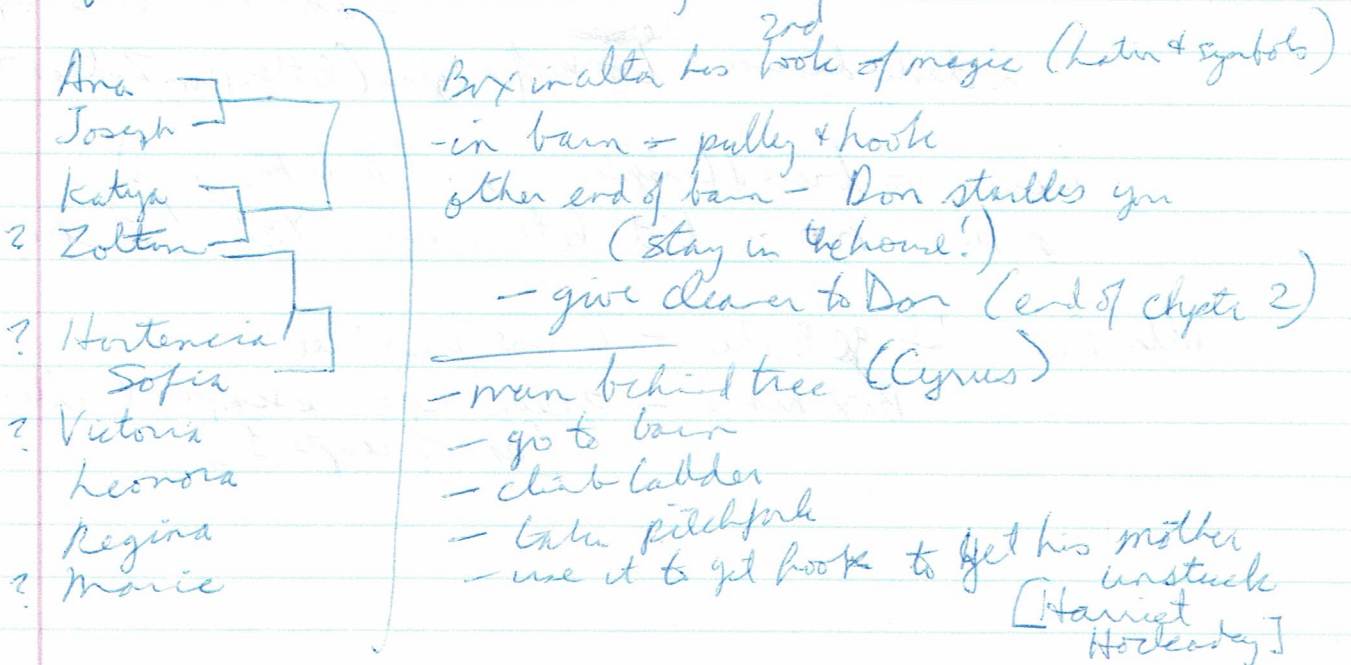 Ana
Joseph
Katya
? Zoltan
? Hortencia
Sofia
? Victoria
Leonora
Regina
? Marie
2nd
Box in alta has book of magic (Latin & symbols)
- in barn - pulley & hook
other end of barn - Don startles you
(stay in the house!)
- give cleaner to Don (end of chpt 2)
- man behind tree (Cyrus)
- go to barn
- climb ladder
- take pitchfork
- use it to get hook to get his mother
unstuck
[Harriet
Hockaday]